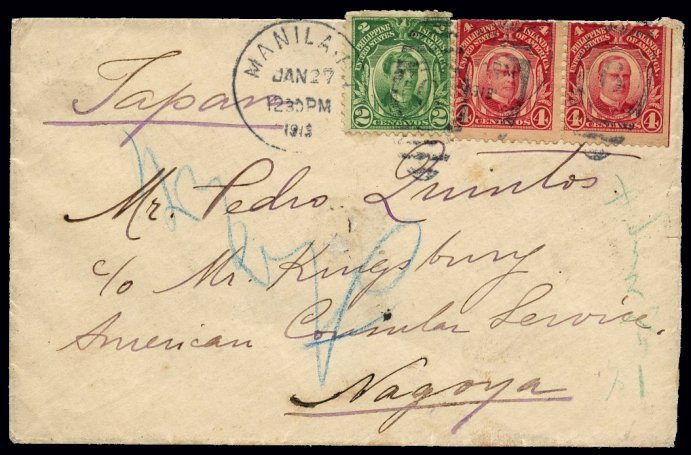 MANILA, P.
JAN 27
12 30 PM
1913
PHILIPPINE ISLANDS
UNITED STATES OF AMERICA
2 CENTAVOS 2
PHILIPPINE ISLANDS
UNITED STATES OF AMERICA
4 CENTAVOS 4
PHILIPPINE ISLANDS
UNITED STATES OF AMERICA
4 CENTAVOS 4
Japan
Mr. Pedro Quintos.
c/o Mr. Kingsbury
American Consular Service.
Nagoya